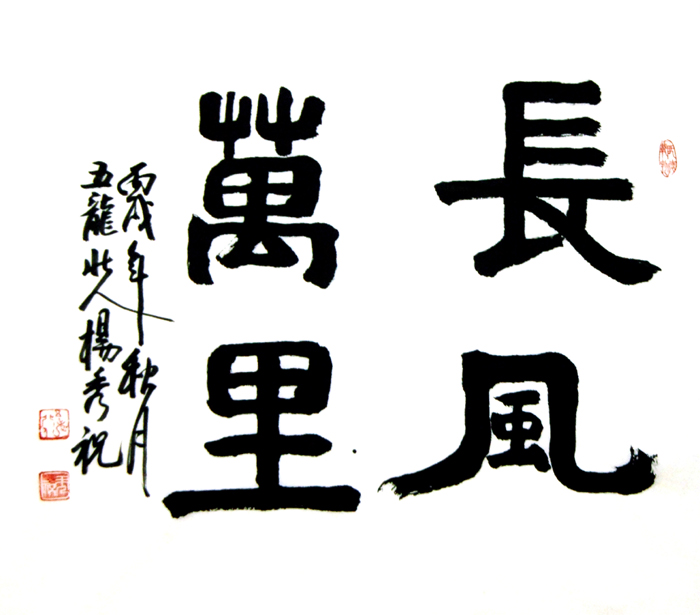 長風
萬里
丙戌年秋月
五龍北人楊秀祝